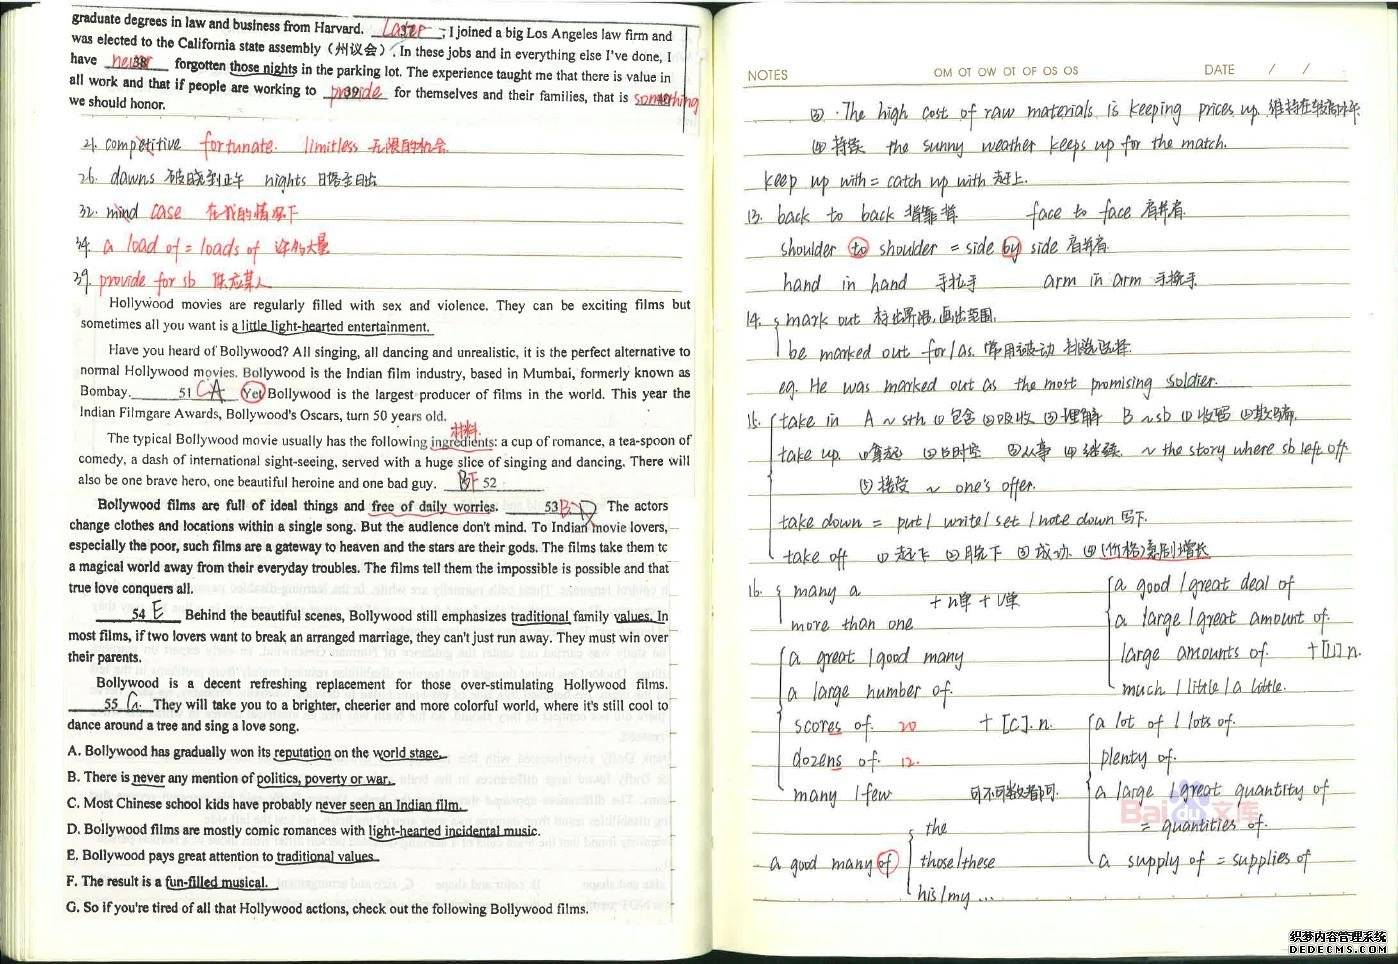 graduate degrees in law and business from Harvard. Later, I joined a big Los Angeles law firm and
was elected to the California state assembly（州议会）. In these jobs and in everything else I've done, I
have never 38 forgotten those nights in the parking lot. The experience taught me that there is value in
all work and that if people are working to provide 39 for themselves and their families, that is something
we should honor.
21. competitive fortunate. limitless 无限的机会
26. dawns 破晓到正午 nights 日落至日出
32. mind case 在我的情况下
34. a load of = loads of 许多大量
39. provide for sb 供应某人
Hollywood movies are regularly filled with sex and violence. They can be exciting films but
sometimes all you want is a little light-hearted entertainment.
Have you heard of Bollywood? All singing, all dancing and unrealistic, it is the perfect alternative to
normal Hollywood movies. Bollywood is the Indian film industry, based in Mumbai, formerly known as
Bombay. 51 C A Yet Bollywood is the largest producer of films in the world. This year the
Indian Filmgare Awards, Bollywood's Oscars, turn 50 years old.
材料
The typical Bollywood movie usually has the following ingredients: a cup of romance, a tea-spoon of
comedy, a dash of international sight-seeing, served with a huge slice of singing and dancing. There will
also be one brave hero, one beautiful heroine and one bad guy. F 52
Bollywood films are full of ideal things and free of daily worries. 53 B D The actors
change clothes and locations within a single song. But the audience don't mind. To Indian movie lovers,
especially the poor, such films are a gateway to heaven and the stars are their gods. The films take them to
a magical world away from their everyday troubles. The films tell them the impossible is possible and that
true love conquers all.
54 E Behind the beautiful scenes, Bollywood still emphasizes traditional family values. In
most films, if two lovers want to break an arranged marriage, they can't just run away. They must win over
their parents.
Bollywood is a decent refreshing replacement for those over-stimulating Hollywood films.
55 G. They will take you to a brighter, cheerier and more colorful world, where it's still cool to
dance around a tree and sing a love song.
A. Bollywood has gradually won its reputation on the world stage.
B. There is never any mention of politics, poverty or war.
C. Most Chinese school kids have probably never seen an Indian film.
D. Bollywood films are mostly comic romances with light-hearted incidental music.
E. Bollywood pays great attention to traditional values.
F. The result is a fun-filled musical.
G. So if you're tired of all that Hollywood actions, check out the following Bollywood films.
NOTES OM OT OW OT OF OS OS DATE / /
③. The high cost of raw materials is keeping prices up. 维持在较高水平
④ 持续 the sunny weather keeps up for the match.
keep up with = catch up with 赶上.
13. back to back 背靠背 face to face 肩并肩.
shoulder to shoulder = side by side 肩并肩.
hand in hand 手拉手 arm in arm 手挽手.
14. mark out 标出界限, 画出范围.
be marked out for/as. 常用被动 挑选选择.
eg. He was marked out as the most promising soldier.
15. take in A ~ sth ①包含 ②吸收 ③理解 B ~ sb ①收留 ②欺骗.
take up. ①拿起 ②占时空 ③从事 ④继续. ~ the story where sb left off.
⑤接受 ~ one's offer.
take down = put / write / set / note down 写下.
take off ①起飞 ②脱下 ③成功. ④(价格)急剧增长
16. many a + n单 + V单
more than one
a good / great deal of
a large / great amount of.
large amounts of. + [U] n.
much / little / a little.
a great / good many
a large number of.
scores of. 20 + [C]. n.
dozens of. 12.
many / few
可不可数皆可.
a lot of / lots of.
plenty of.
a large / great quantity of
= quantities of.
a supply of = supplies of
a good many of
the
those/these
his/my ...
Bai du 文库
织梦内容管理系统
DEDECMS.COM